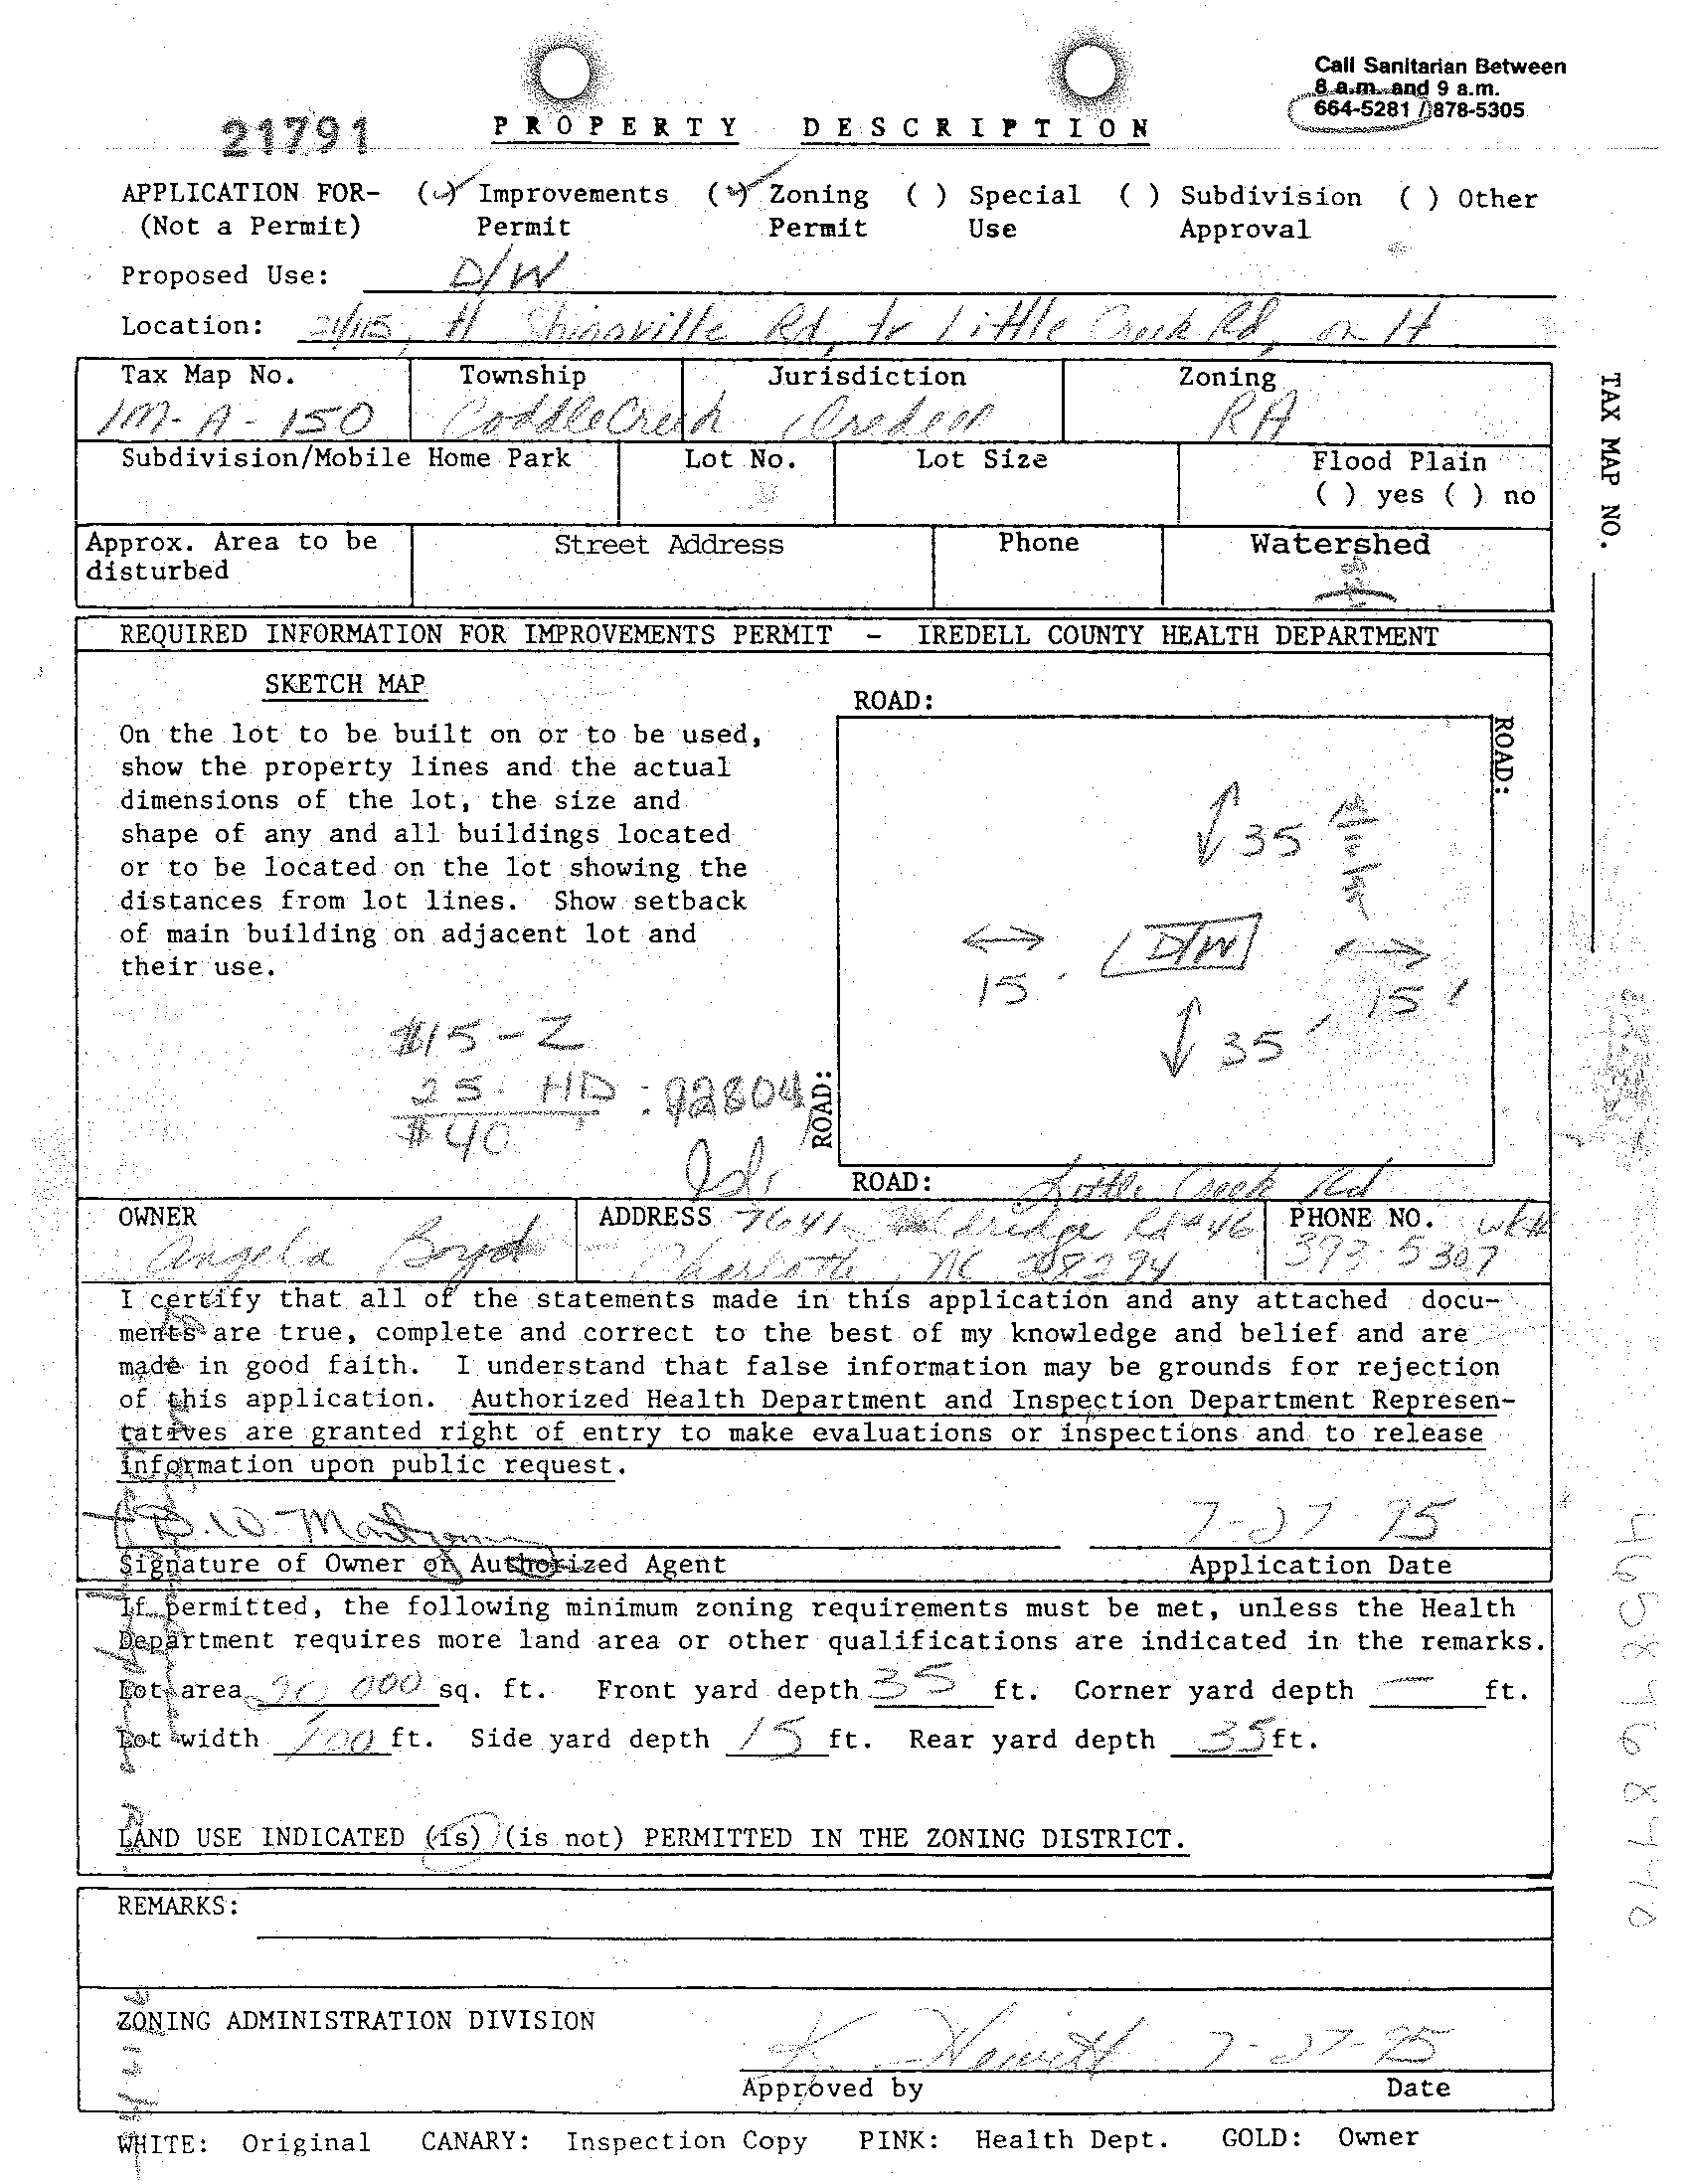 Call Sanitarian Between
8 a.m. and 9 a.m.
664-5281 / 878-5305
21791
PROPERTY DESCRIPTION
APPLICATION FOR- (✓) Improvements (✓) Zoning ( ) Special ( ) Subdivision ( ) Other
(Not a Permit) Permit Permit Use Approval
Proposed Use: D/W
Location: 21/115, tl Shinnville Rd, tr Little Creek Rd, on lt
Tax Map No. Township Jurisdiction Zoning
1M-A-150 Coddle Creek Iredell RA
Subdivision/Mobile Home Park Lot No. Lot Size Flood Plain
( ) yes ( ) no
Approx. Area to be disturbed Street Address Phone Watershed
TAX MAP NO.
REQUIRED INFORMATION FOR IMPROVEMENTS PERMIT - IREDELL COUNTY HEALTH DEPARTMENT
SKETCH MAP
On the lot to be built on or to be used,
show the property lines and the actual
dimensions of the lot, the size and
shape of any and all buildings located
or to be located on the lot showing the
distances from lot lines. Show setback
of main building on adjacent lot and
their use.
$15-Z
25. HD : 92804
$40
ROAD:
ROAD:
35
D/W
15
15'
35'
ROAD:
ROAD: Little Creek Rd
OWNER ADDRESS 7641 Rd #46 PHONE NO. wk#
Angela Boyd Charlotte, NC 28294 393-5307
I certify that all of the statements made in this application and any attached docu-
ments are true, complete and correct to the best of my knowledge and belief and are
made in good faith. I understand that false information may be grounds for rejection
of this application. Authorized Health Department and Inspection Department Represen-
tatives are granted right of entry to make evaluations or inspections and to release
information upon public request.
7-27-95
Signature of Owner or Authorized Agent Application Date
If permitted, the following minimum zoning requirements must be met, unless the Health
Department requires more land area or other qualifications are indicated in the remarks.
Lot area 20,000 sq. ft. Front yard depth 35 ft. Corner yard depth — ft.
Lot width 100 ft. Side yard depth 15 ft. Rear yard depth 35 ft.
LAND USE INDICATED (is) (is not) PERMITTED IN THE ZONING DISTRICT.
REMARKS:
ZONING ADMINISTRATION DIVISION
K. Hewitt 7-27-95
Approved by Date
WHITE: Original CANARY: Inspection Copy PINK: Health Dept. GOLD: Owner